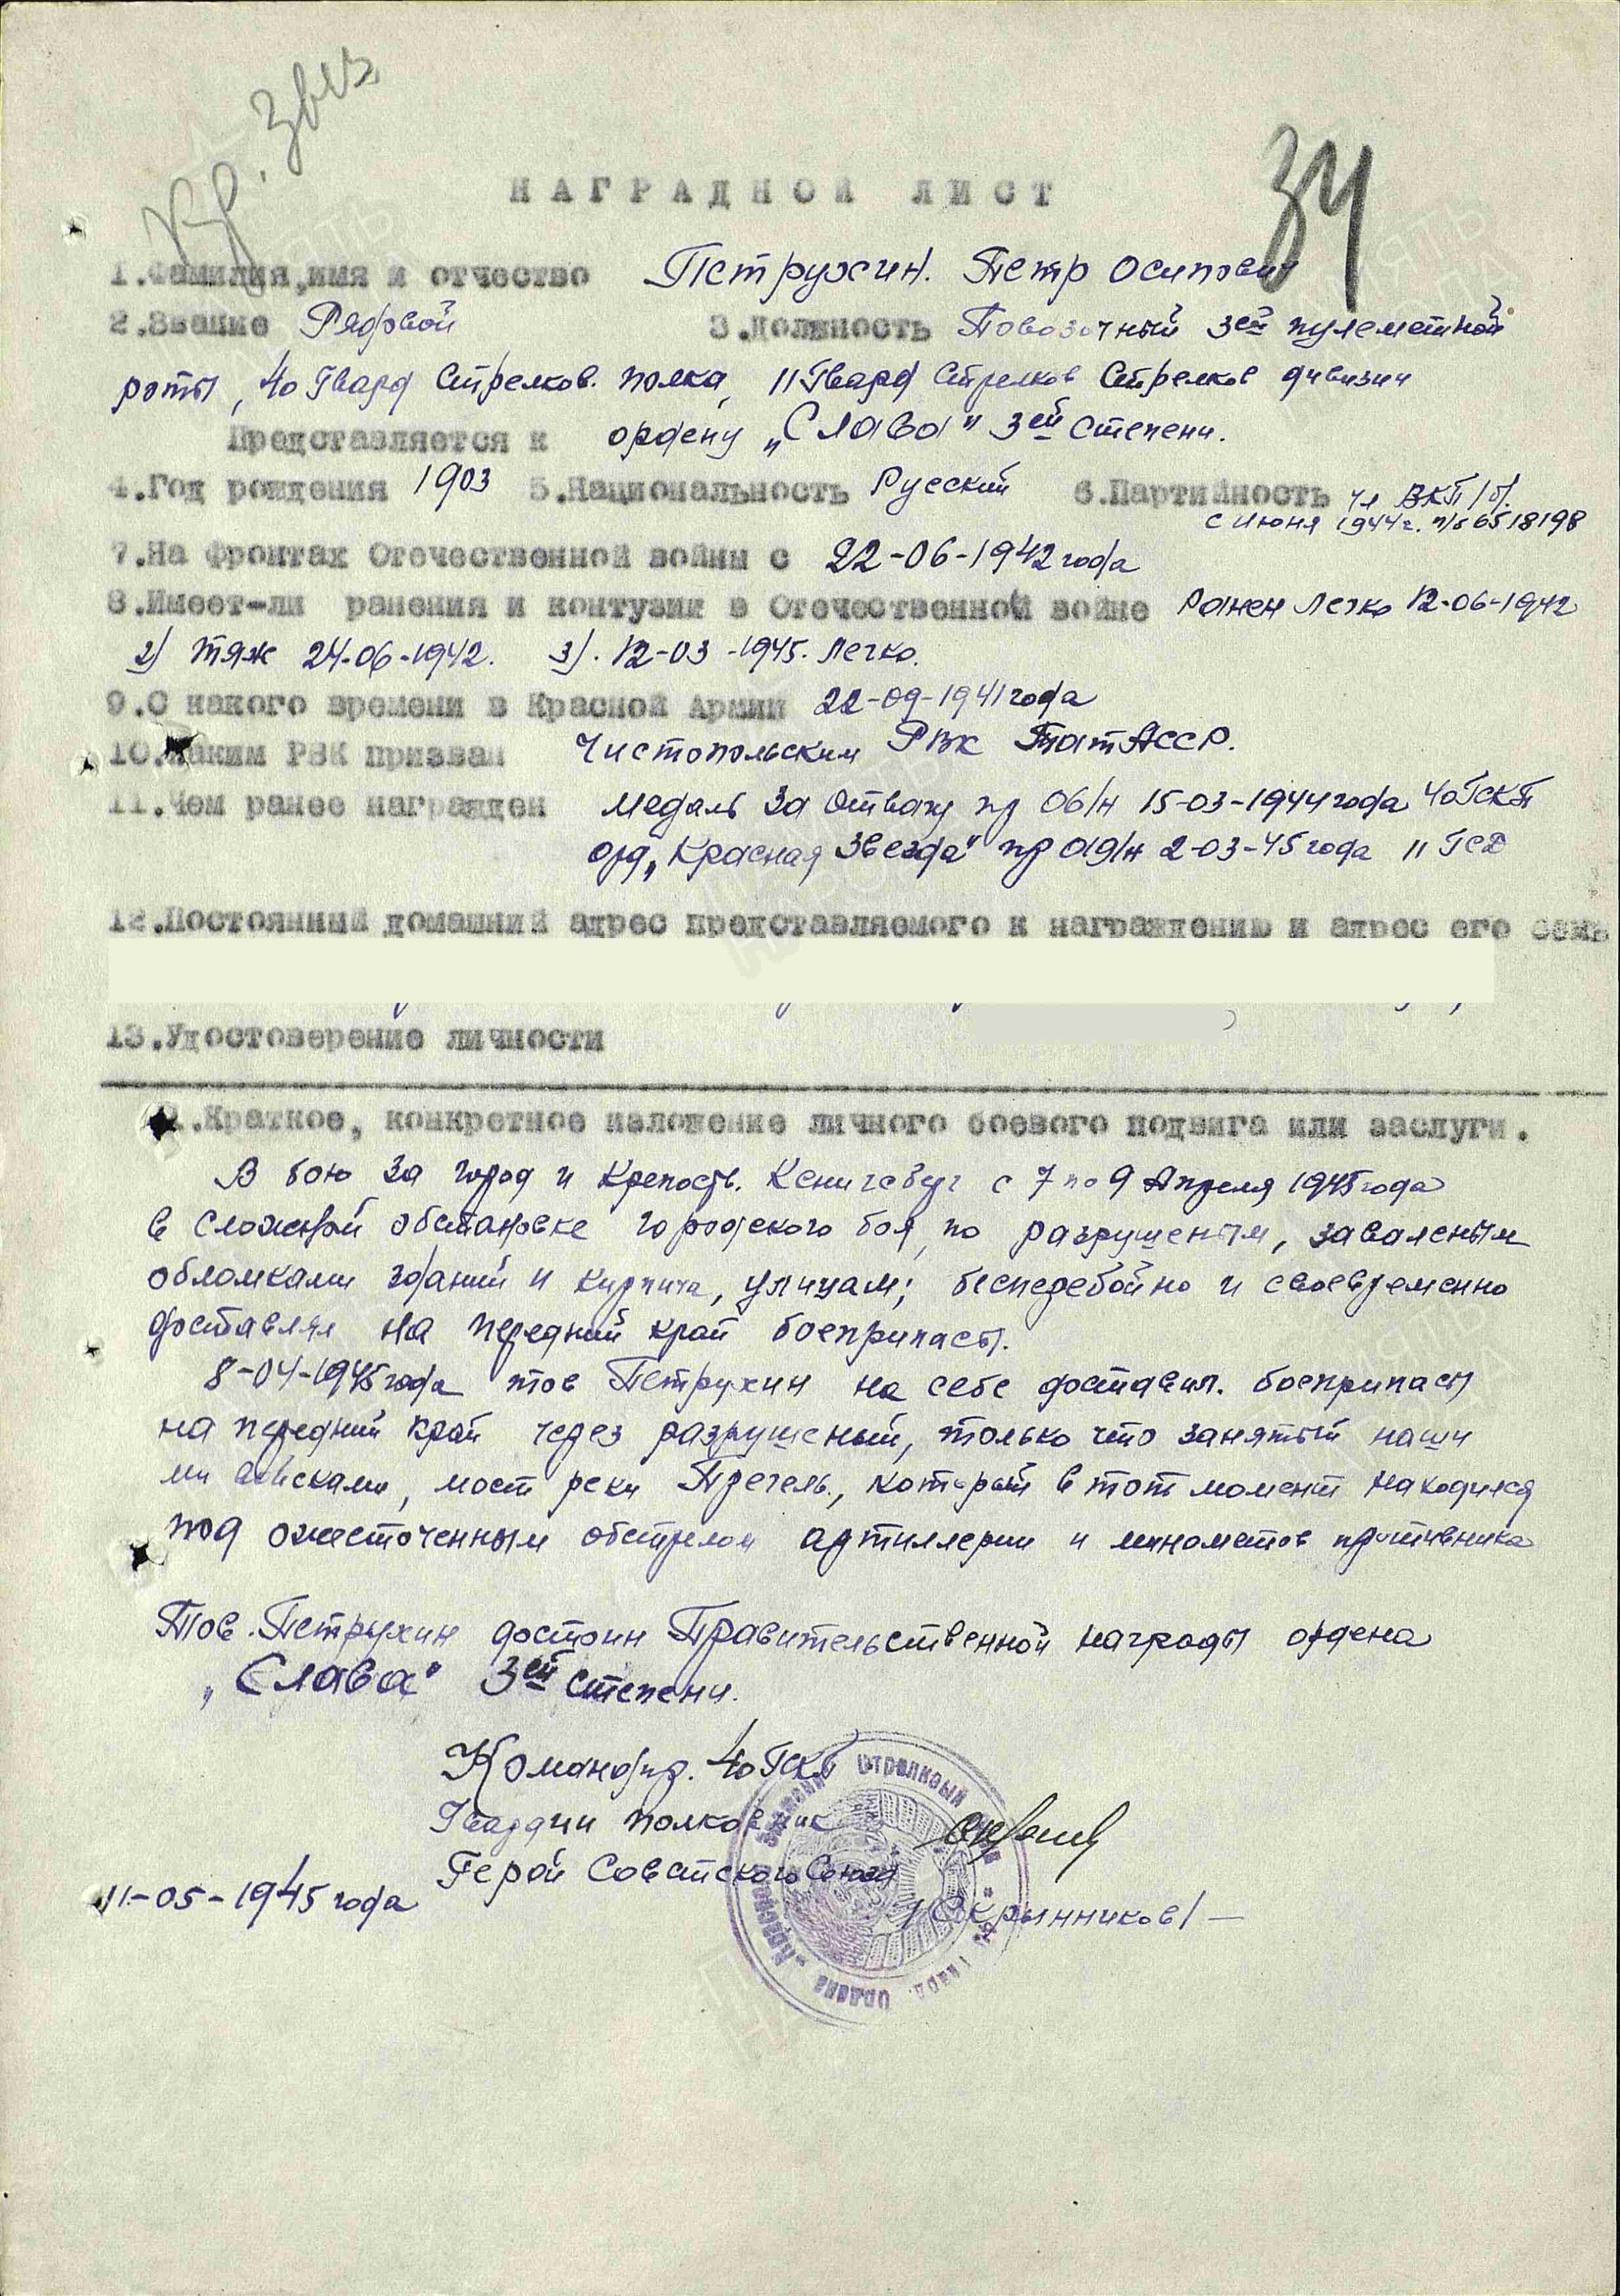 Кр. Звез
34
НАГРАДНОЙ ЛИСТ
1.Фамилия,имя и отчество Петрухин. Петр Осипович
2.Звание Рядовой 3.Должность Повозочный 3ей пулеметной
роты, 40 Гвард Стрелков. полка, 11 Гвард Стрелков Стрелков дивизии
Представляется к ордену „Слава" 3ей степени.
4.Год рождения 1903 5.Национальность Русский 6.Партийность чл ВКП/б/.
с июня 1944г. п/б 6518198
7.На фронтах Отечественной войны с 22-06-1942 года
8.Имеет-ли ранения и контузии в Отечественной войне Ранен Легко 12-06-1942
2) Тяж 24-06-1942. 3). 12-03-1945. Легко.
9.С какого времени в Красной Армии 22-09-1941 года
10.Каким РВК призван Чистопольским РВК ТатАССР.
11.Чем ранее награжден Медаль За Отвагу пр 06/н 15-03-1944 года 40ГСКП
орд „Красная Звезда" пр 019/н 2-03-45 года 11 ГСД
12.Постоянный домашний адрес представляемого к награждению и адрес его семь
13.Удостоверение личности
1.Краткое, конкретное изложение личного боевого подвига или заслуги.
В бою за город и крепость. Кенигсбуг с 7 по 9 Апреля 1945 года
в сложной обстановке городского боя, по разрушеным, заваленым
обломками зданий и кирпича, улицам; бесперебойно и своевременно
доставлял на передний край боеприпасы.
8-04-1945 года тов Петрухин на себе доставил. боеприпасы
на передний край через разрушеный, только что занятый наши
ми войсками, мост реки Прегель., который в тот момент находился
под ожесточенным обстрелом артиллерии и минометов противника
Тов. Петрухин достоин Правительственной награды ордена
„Слава" 3ей степени.
Командир. 40 ГСКП
Гвардии полковник
Герой Советского Союза
11-05-1945 года
/Скрынников/ —
Стрелковый
Ордена „Красное Знамени"